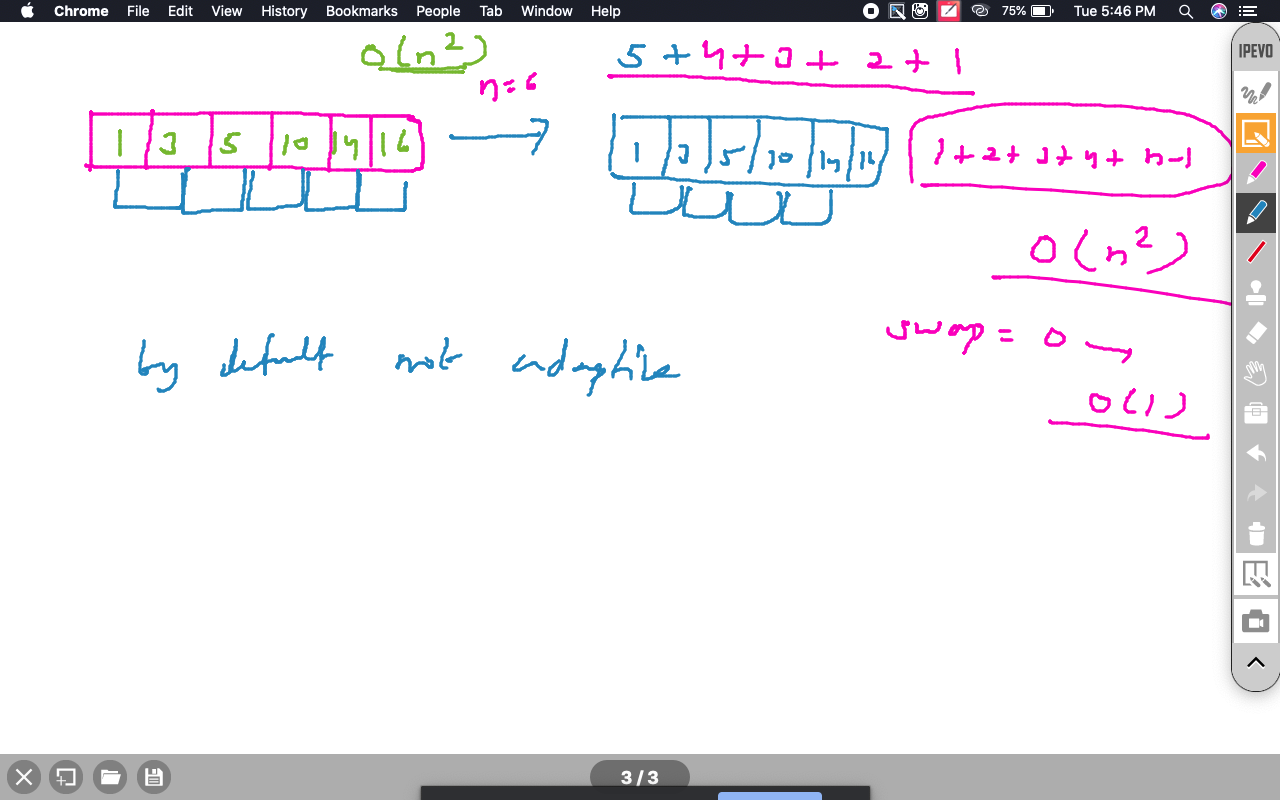 Chrome File Edit View History Bookmarks People Tab Window Help 75% Tue 5:46 PM
IPEVO
O(n²)
n=6
5+4+3+2+1
1 3 5 10 14 16
1 3 5 10 14 16
1+2+3+4+ n-1
O(n²)
swap = 0
O(1)
by default not adaptive
3 / 3